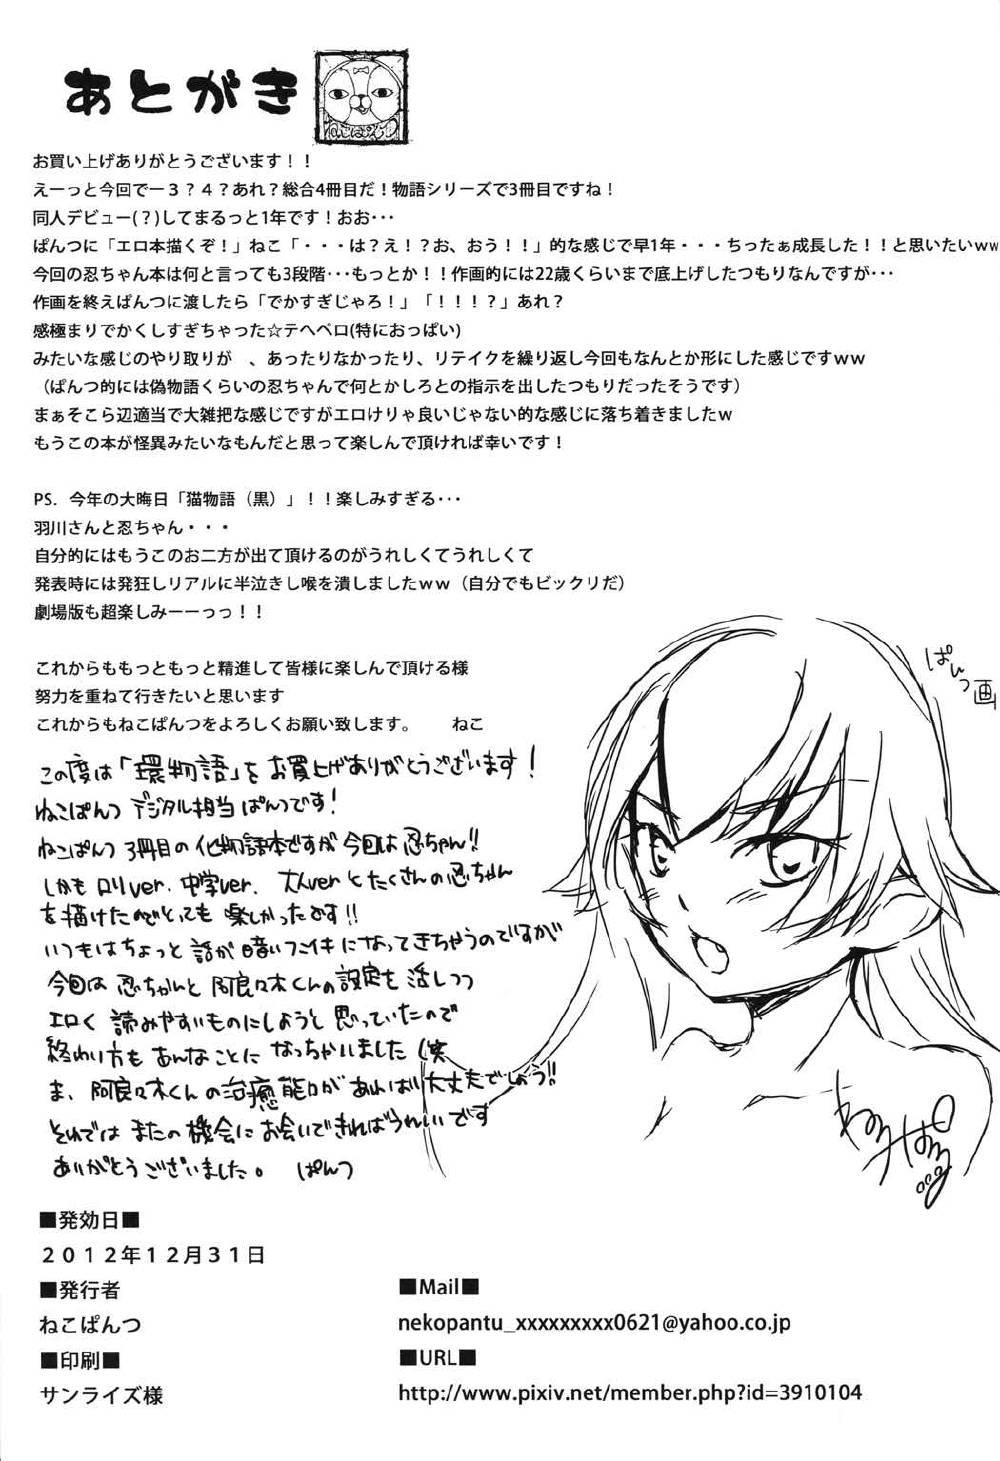 あとがき
ねこぱんつ
お買い上げありがとうございます！！
えーっと今回でー３？４？あれ？総合4冊目だ！物語シリーズで3冊目ですね！
同人デビュー(？)してまるっと1年です！おお･･･
ぱんつに「エロ本描くぞ！」ねこ「・・・は？え！？お、おう！！」的な感じで早1年・・・ちったぁ成長した！！と思いたいｗｗ
今回の忍ちゃん本は何と言っても3段階･･･もっとか！！作画的には22歳くらいまで底上げしたつもりなんですが･･･
作画を終えぱんつに渡したら「でかすぎじゃろ！」「！！！？」あれ？
感極まりでかくしすぎちゃった☆テヘペロ(特におっぱい)
みたいな感じのやり取りが　、あったりなかったり、リテイクを繰り返し今回もなんとか形にした感じですｗｗ
（ぱんつ的には偽物語くらいの忍ちゃんで何とかしろとの指示を出したつもりだったそうです）
まぁそこら辺適当で大雑把な感じですがエロけりゃ良いじゃない的な感じに落ち着きましたｗ
もうこの本が怪異みたいなもんだと思って楽しんで頂ければ幸いです！
PS．今年の大晦日「猫物語（黒）」！！楽しみすぎる･･･
羽川さんと忍ちゃん・・・
自分的にはもうこのお二方が出て頂けるのがうれしくてうれしくて
発表時には発狂しリアルに半泣きし喉を潰しましたｗｗ（自分でもビックリだ）
劇場版も超楽しみーーっっ！！
これからももっともっと精進して皆様に楽しんで頂ける様
努力を重ねて行きたいと思います
これからもねこぱんつをよろしくお願い致します。　　ねこ
この度は「環物語」をお買上げありがとうございます！
ねこぱんつ デジタル担当 ぱんつです！
ねこぱんつ 3冊目の化物語本ですが今回は忍ちゃん!!
しかも ロリver. 中学ver. 大人verとたくさんの忍ちゃん
を描けたのでとても楽しかったです!!
いつもはちょっと話が暗いフンイキになってきちゃうのですが
今回は忍ちゃんと阿良々木くんの設定を活しつつ
エロく読みやすいものにしようと思っていたので
終わり方もあんなことになっちゃいました(笑
ま、阿良々木くんの治癒能力があれば大丈夫でしょう!!
それではまたの機会にお会いできればうれしいです
ありがとうございました。　ぱんつ
ぱんつ画
ねこぱんつ
■発効日■
２０１２年１２月３１日
■発行者
ねこぱんつ
■印刷■
サンライズ様
■Mail■
nekopantu_xxxxxxxxx0621@yahoo.co.jp
■URL■
http://www.pixiv.net/member.php?id=3910104